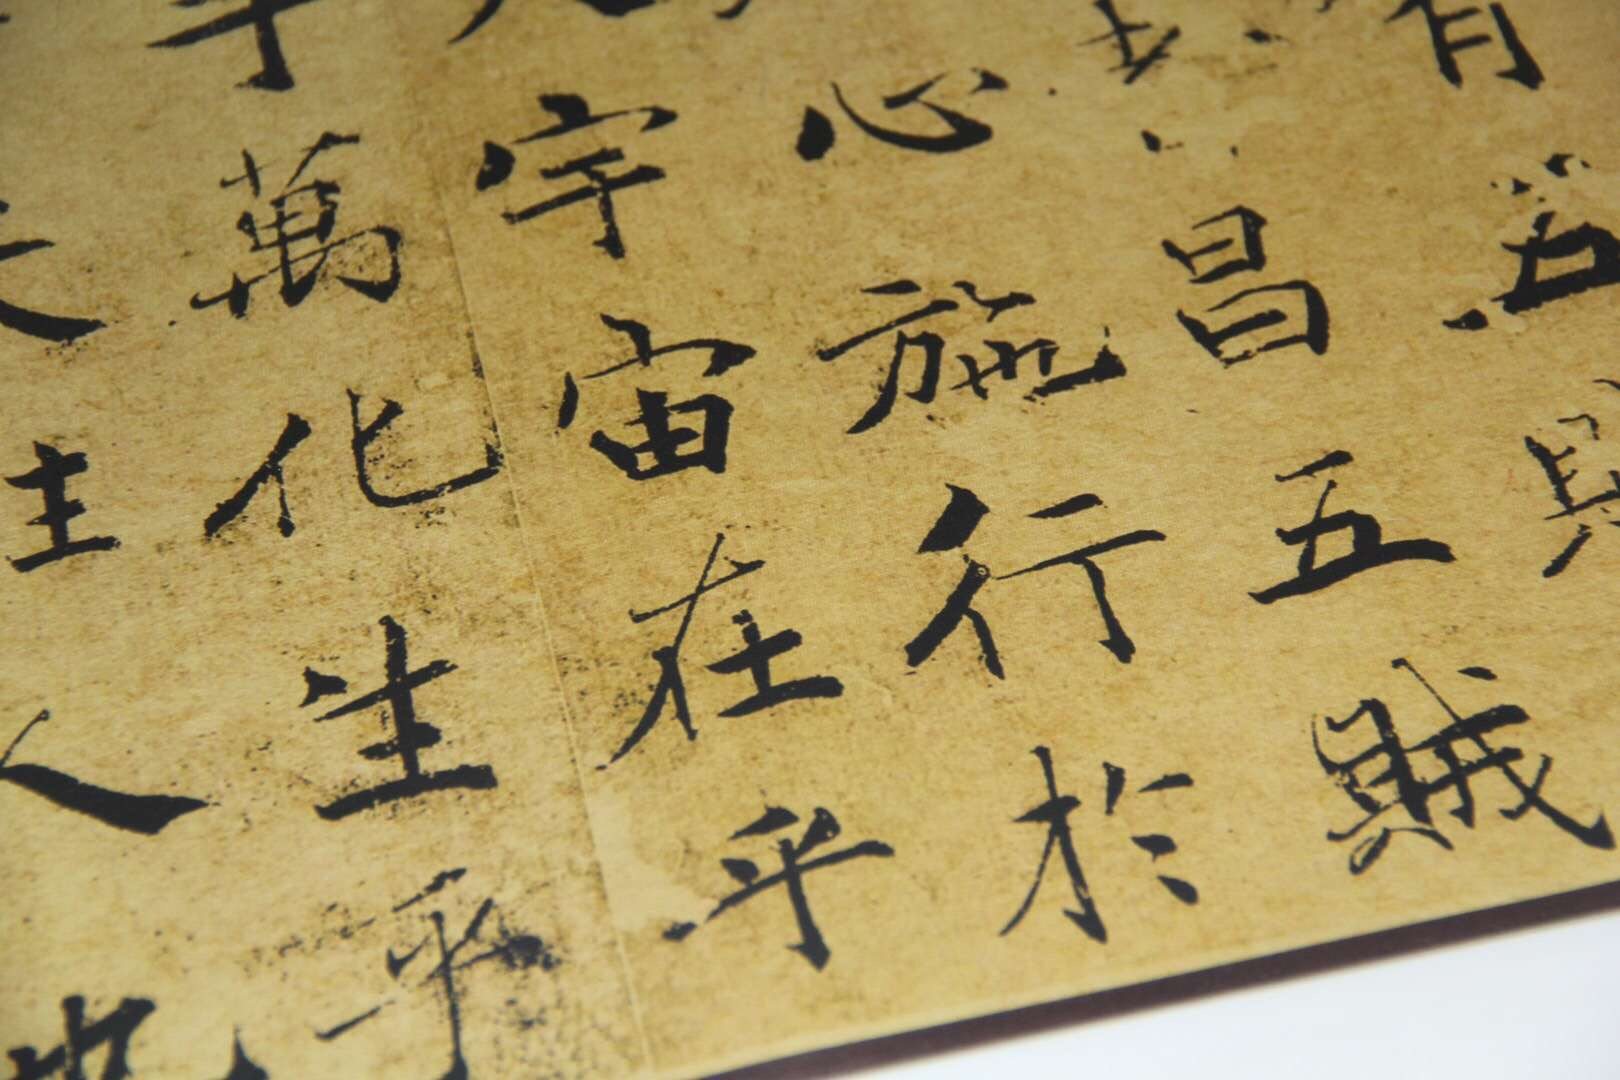 有五
昌五賊
心施行於
宇宙在乎
萬化生乎
人